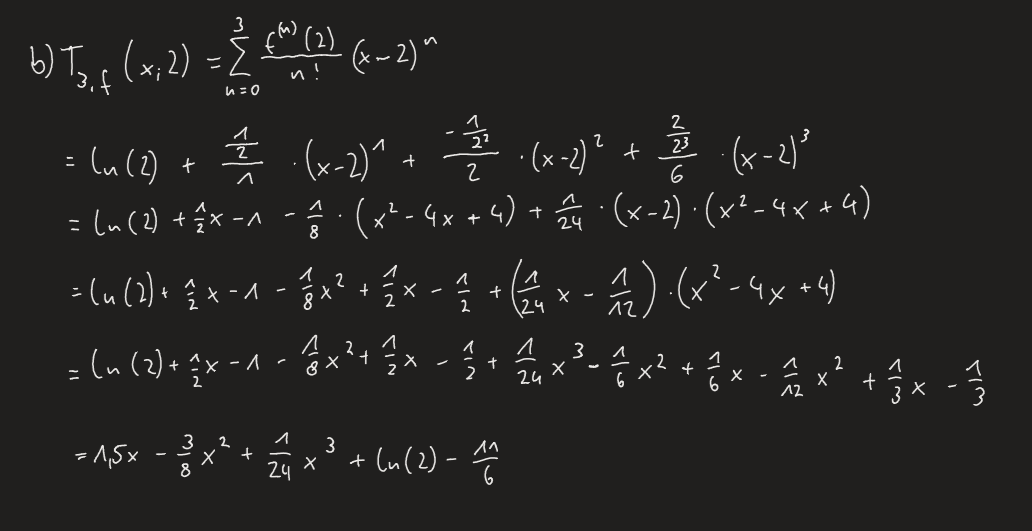 b) T_{3,f} (x;2) = \sum_{n=0}^{3} \frac{f^{(n)}(2)}{n!} (x-2)^n
= ln(2) + \frac{\frac{1}{2}}{1} · (x-2)^1 + \frac{-\frac{1}{2^2}}{2} · (x-2)^2 + \frac{\frac{2}{2^3}}{6} · (x-2)^3
= ln(2) + \frac{1}{2}x - 1 - \frac{1}{8} · (x^2 - 4x + 4) + \frac{1}{24} · (x-2) · (x^2 - 4x + 4)
= ln(2) + \frac{1}{2}x - 1 - \frac{1}{8}x^2 + \frac{1}{2}x - \frac{1}{2} + (\frac{1}{24}x - \frac{1}{12}) · (x^2 - 4x + 4)
= ln(2) + \frac{1}{2}x - 1 - \frac{1}{8}x^2 + \frac{1}{2}x - \frac{1}{2} + \frac{1}{24}x^3 - \frac{1}{6}x^2 + \frac{1}{6}x - \frac{1}{12}x^2 + \frac{1}{3}x - \frac{1}{3}
= 1,5x - \frac{3}{8}x^2 + \frac{1}{24}x^3 + ln(2) - \frac{11}{6}